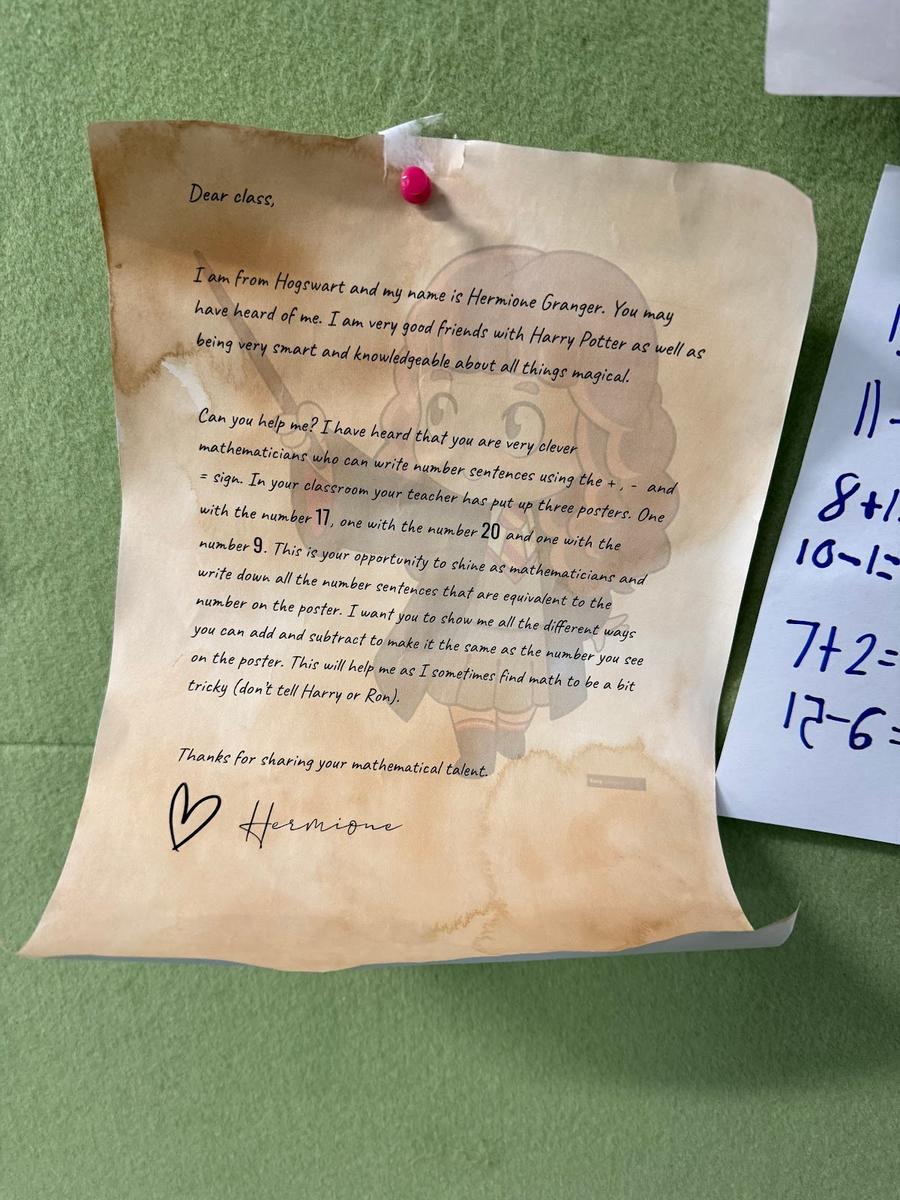 Dear class,
I am from Hogswart and my name is Hermione Granger. You may
have heard of me. I am very good friends with Harry Potter as well as
being very smart and knowledgeable about all things magical.
Can you help me? I have heard that you are very clever
mathematicians who can write number sentences using the +, - and
= sign. In your classroom your teacher has put up three posters. One
with the number 17, one with the number 20 and one with the
number 9. This is your opportunity to shine as mathematicians and
write down all the number sentences that are equivalent to the
number on the poster. I want you to show me all the different ways
you can add and subtract to make it the same as the number you see
on the poster. This will help me as I sometimes find math to be a bit
tricky (don't tell Harry or Ron).
Thanks for sharing your mathematical talent.
Hermione
11-
8+1
10-1=
7+2=
15-6=